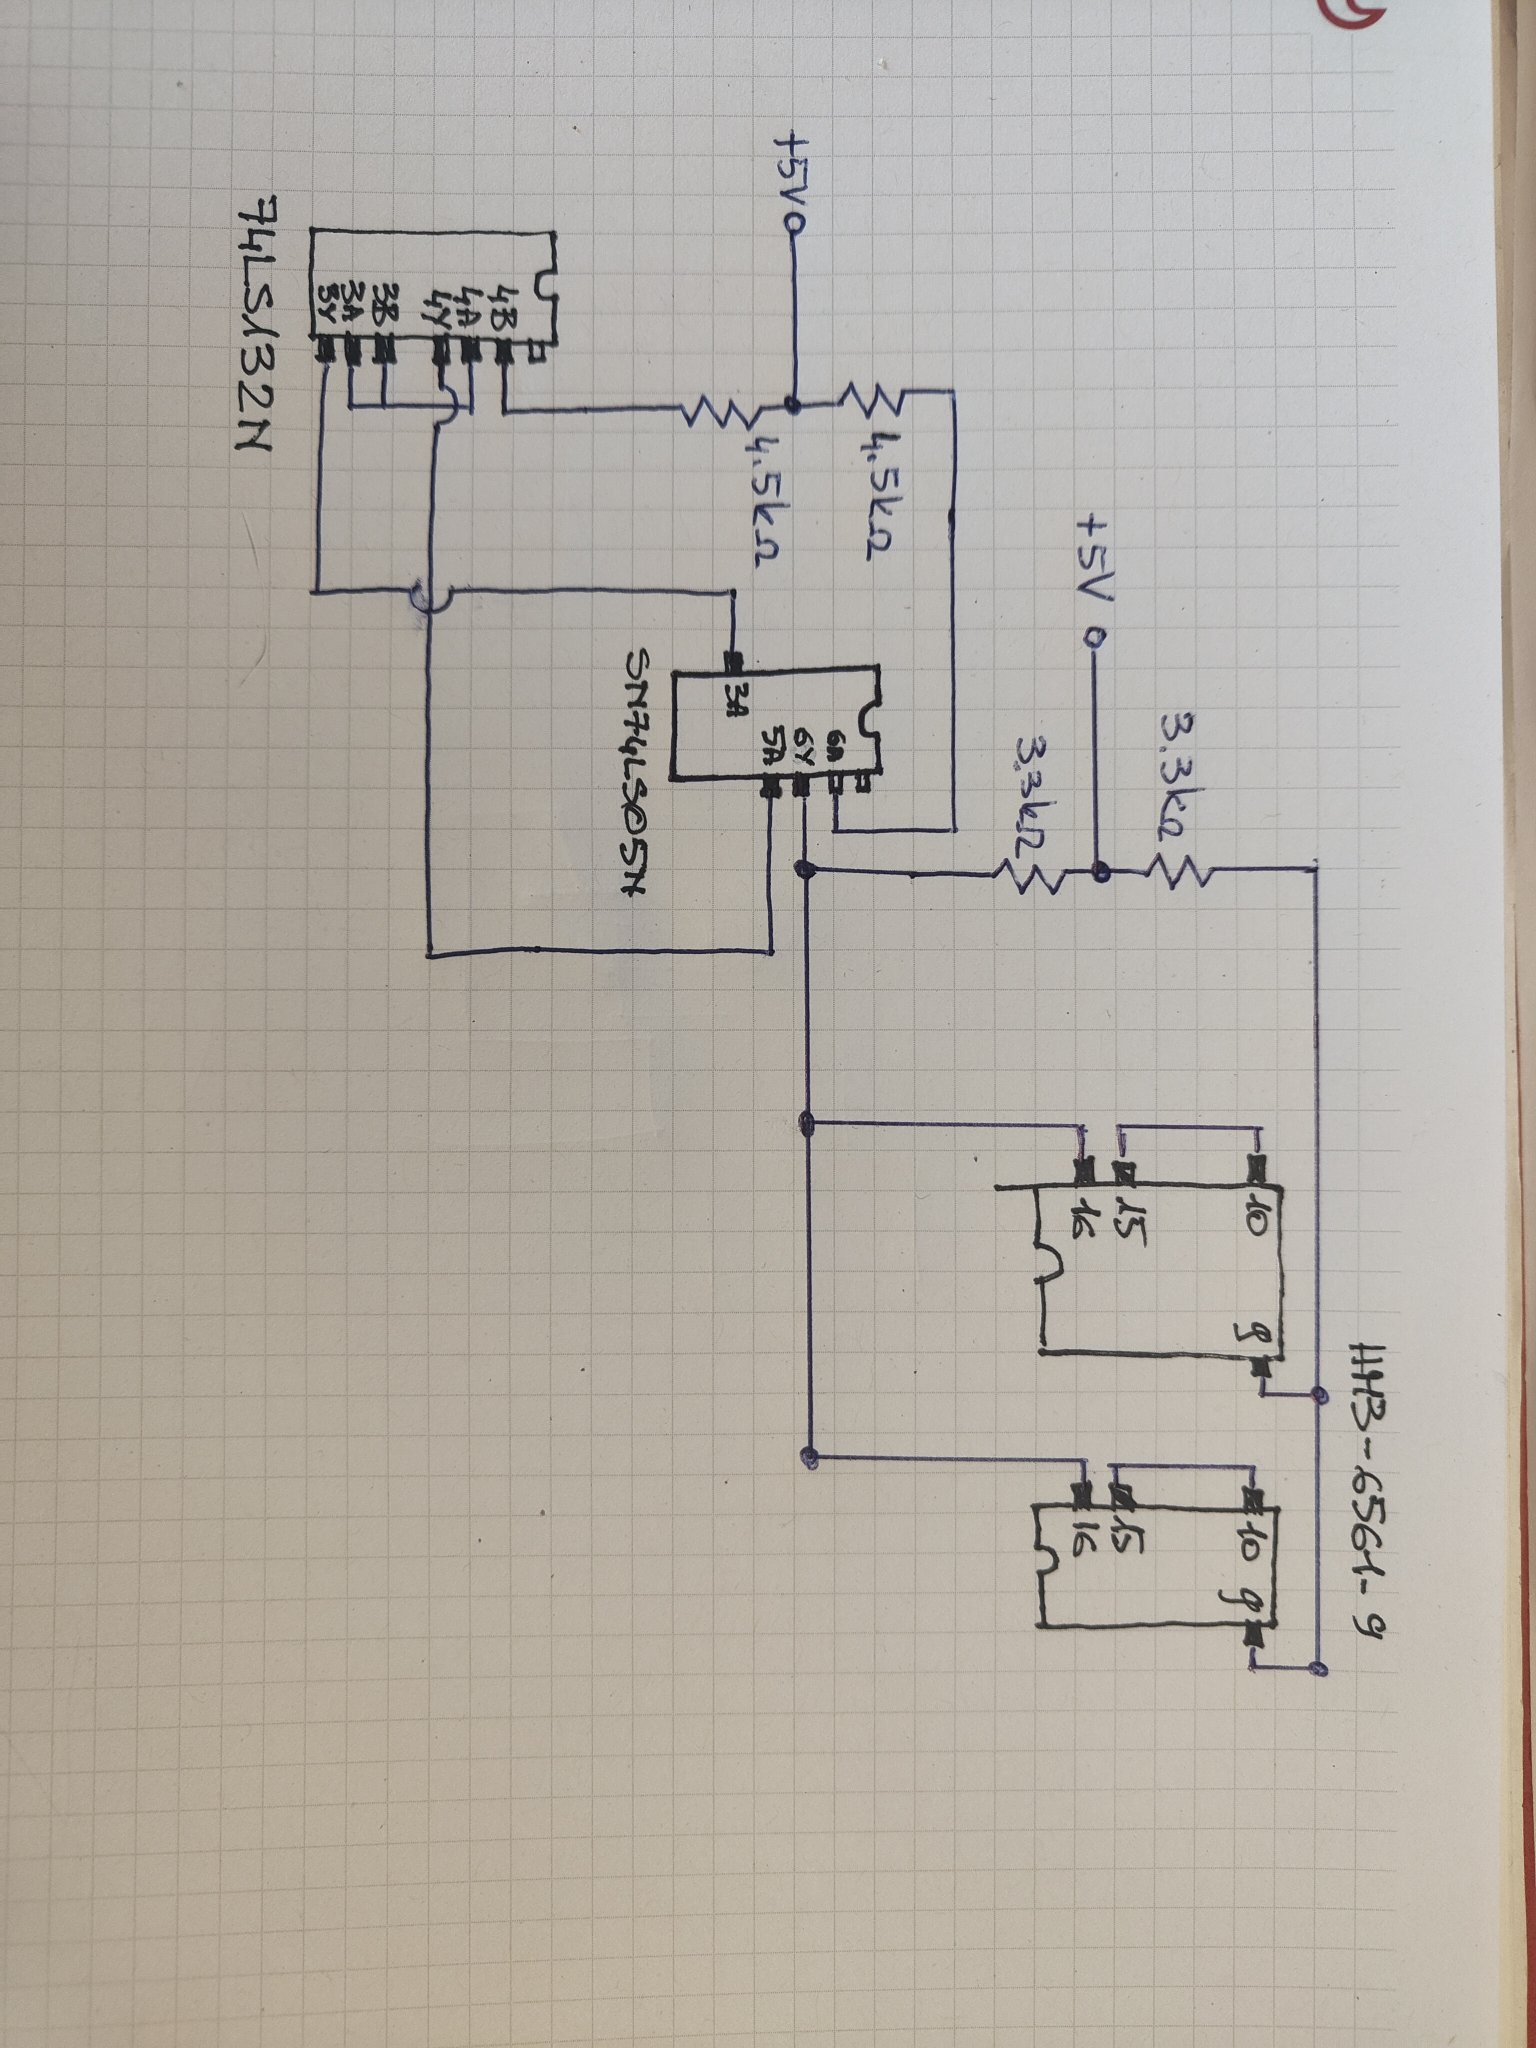 +5V
4.5kΩ
4.5kΩ
+5V
3.3kΩ
3.3kΩ
4B
4A
4Y
3B
3A
3Y
74LS132N
6A
6Y
5A
3A
SN74LS05N
10
15
16
9
10
15
16
9
HM3-6561-9